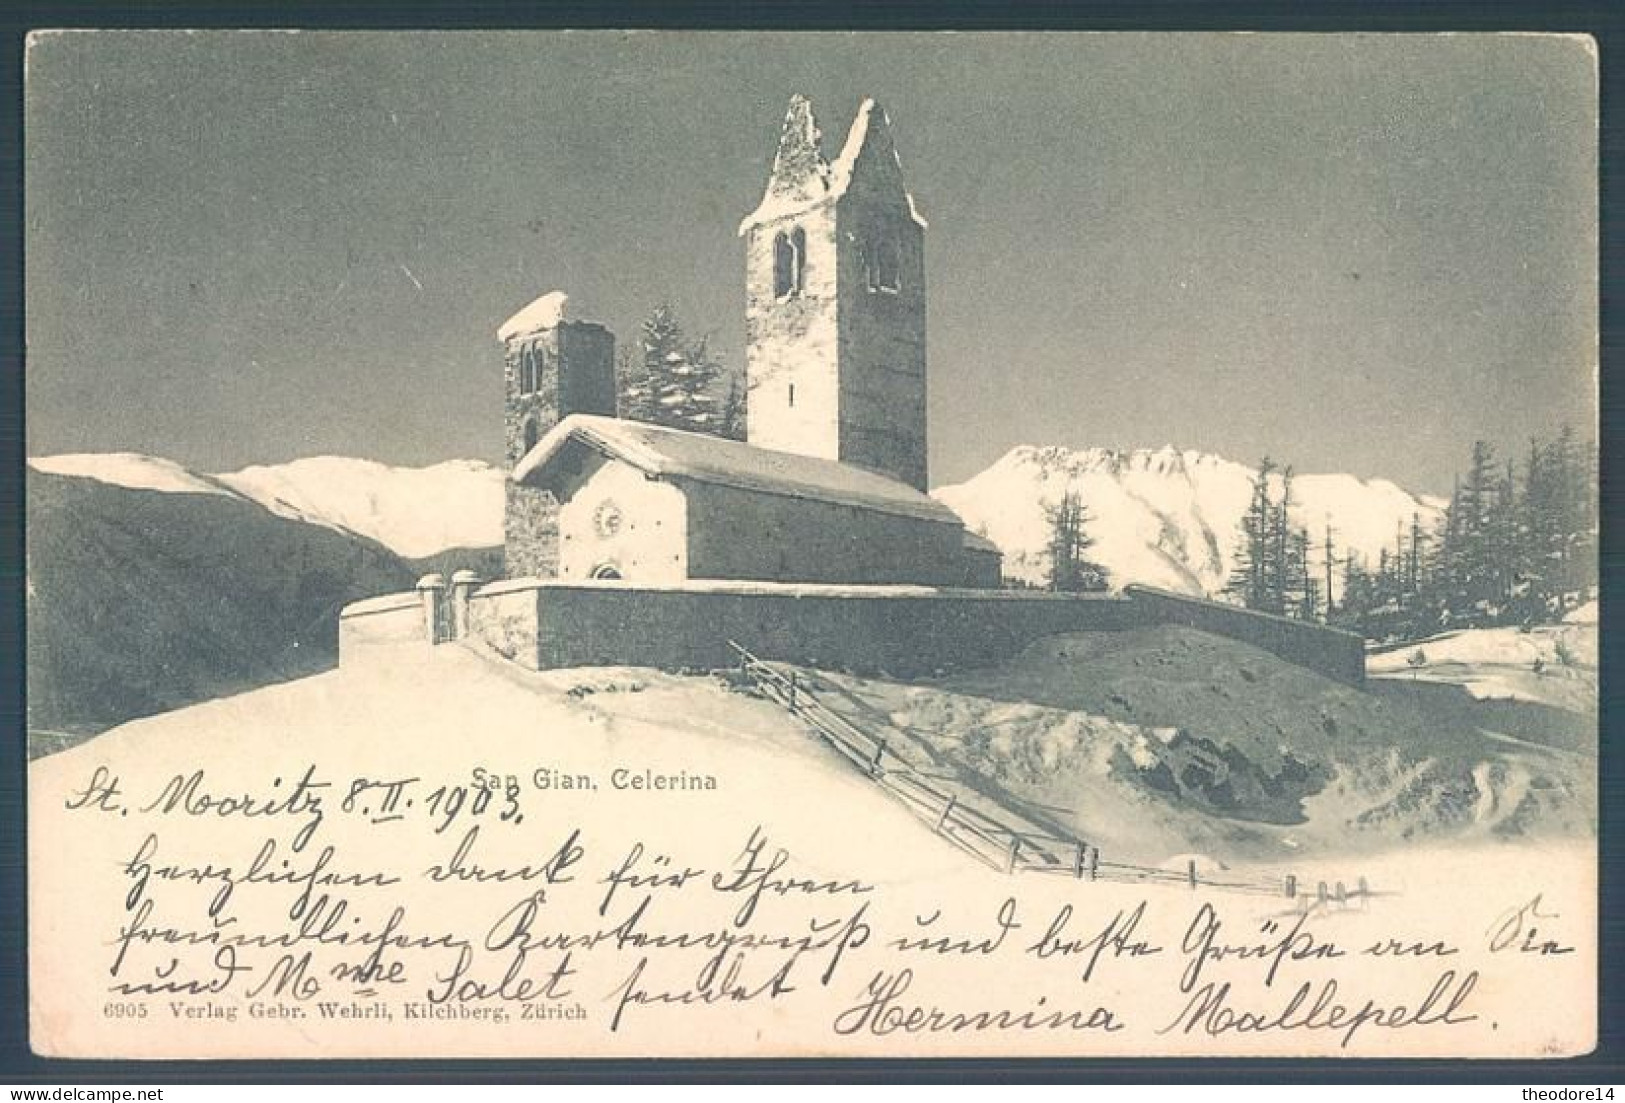 San Gian, Celerina
St. Moritz 8. II. 1903.
Herzlichen Dank für Ihren
freundlichen Kartengruß und beste Grüße an Sie
und Mme Salet sendet Hermina Mallepell.
6905 Verlag Gebr. Wehrli, Kilchberg, Zürich
theodore14